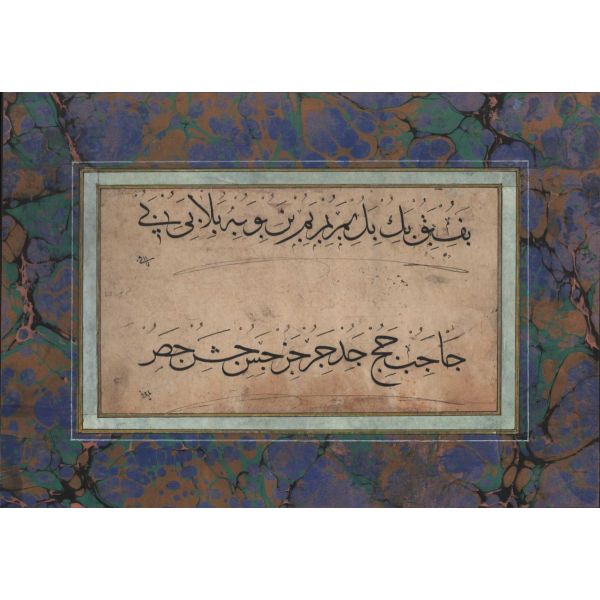 بف بق بك بل بم بم بم بن بو به بلا بى بي
جا جب جج جد جر جر جس جس جص